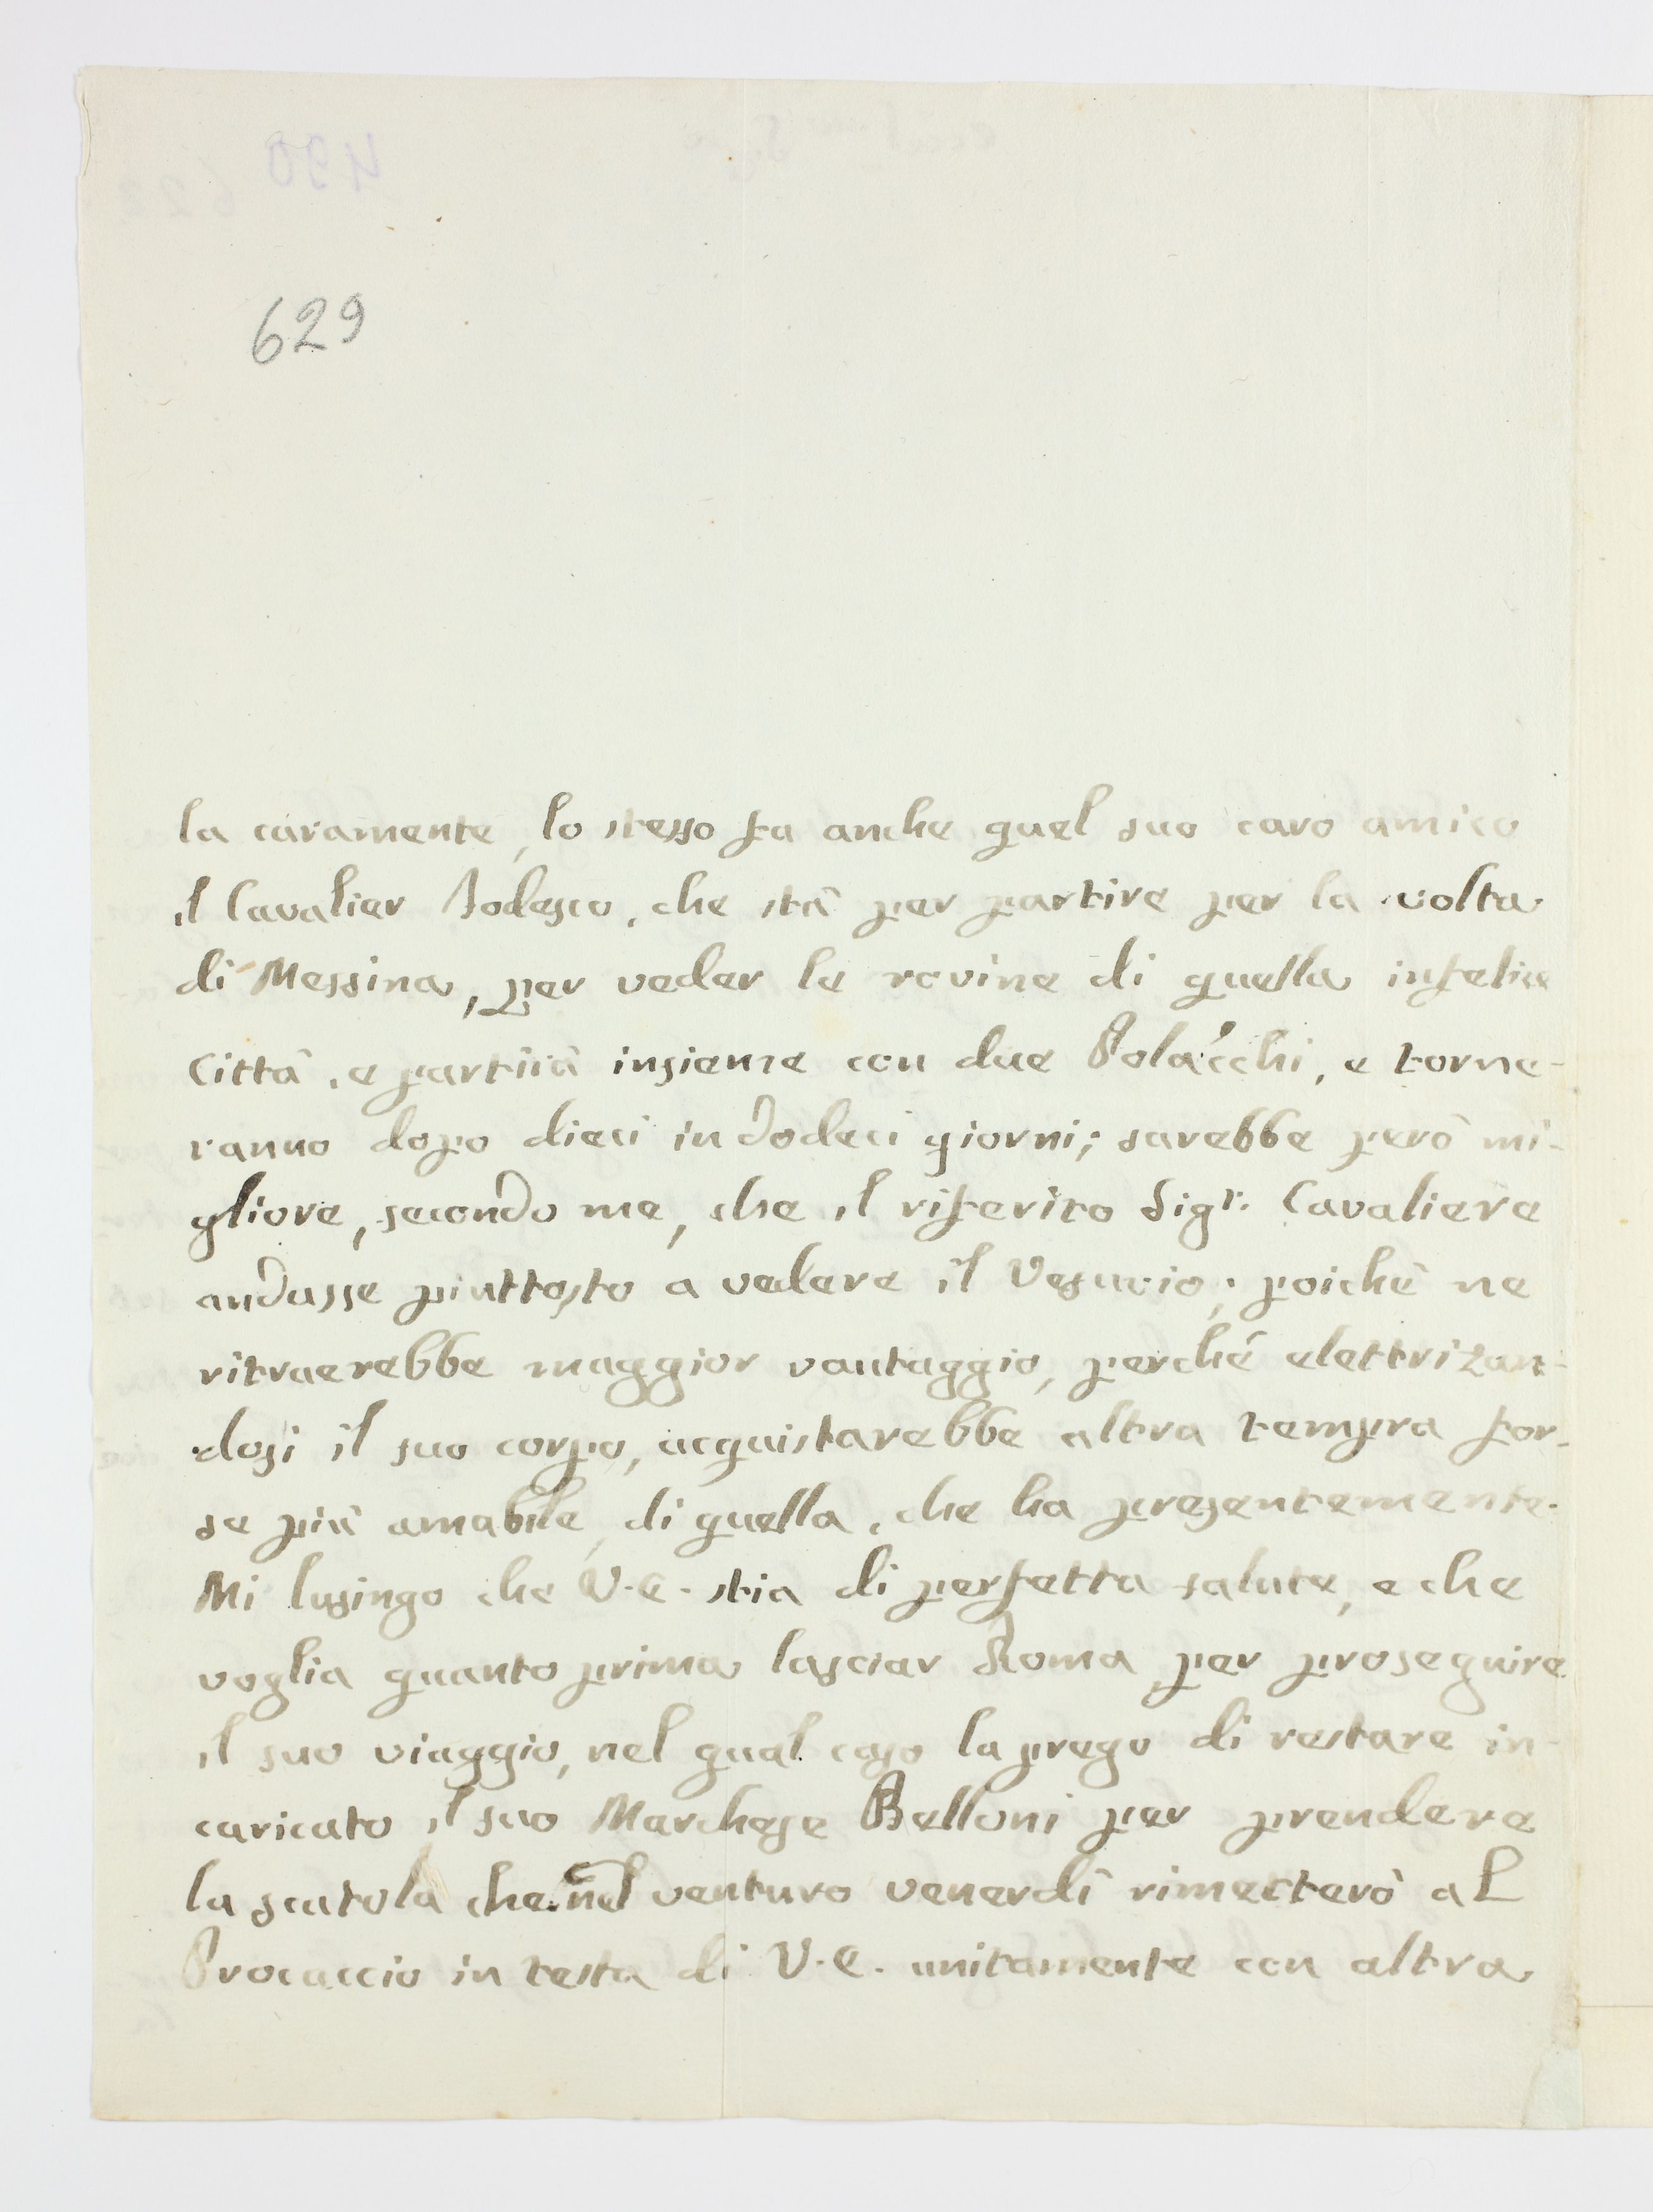 629
la caramente, lo stesso fa anche quel suo caro amico
il Cavalier Todesco, che stà per partire per la volta
di Messina, per veder le rovine di quella infelice
Città, e partirà insieme con due Polacchi, e torne-
ranno dopo dieci in dodeci giorni; sarebbe però mi-
gliore, secondo me, che il riferito Sigr: Cavaliere
andasse piuttosto a vedere il Vesuvio; poichè ne
ritraerebbe maggior vantaggio, perchè elettrizan-
dosi il suo corpo, acquistarebbe altra tempra for-
se più amabile, di quella, che ha presentemente.
Mi lusingo che V. E. stia di perfetta salute, e che
voglia quanto prima lasciar Roma per proseguire
il suo viaggio, nel qual caso la prego di restare in-
caricato il suo Marchese Belloni per prendere
la scatola che nel venturo venerdì rimetterò al
Procaccio in testa di V. E. unitamente con altra